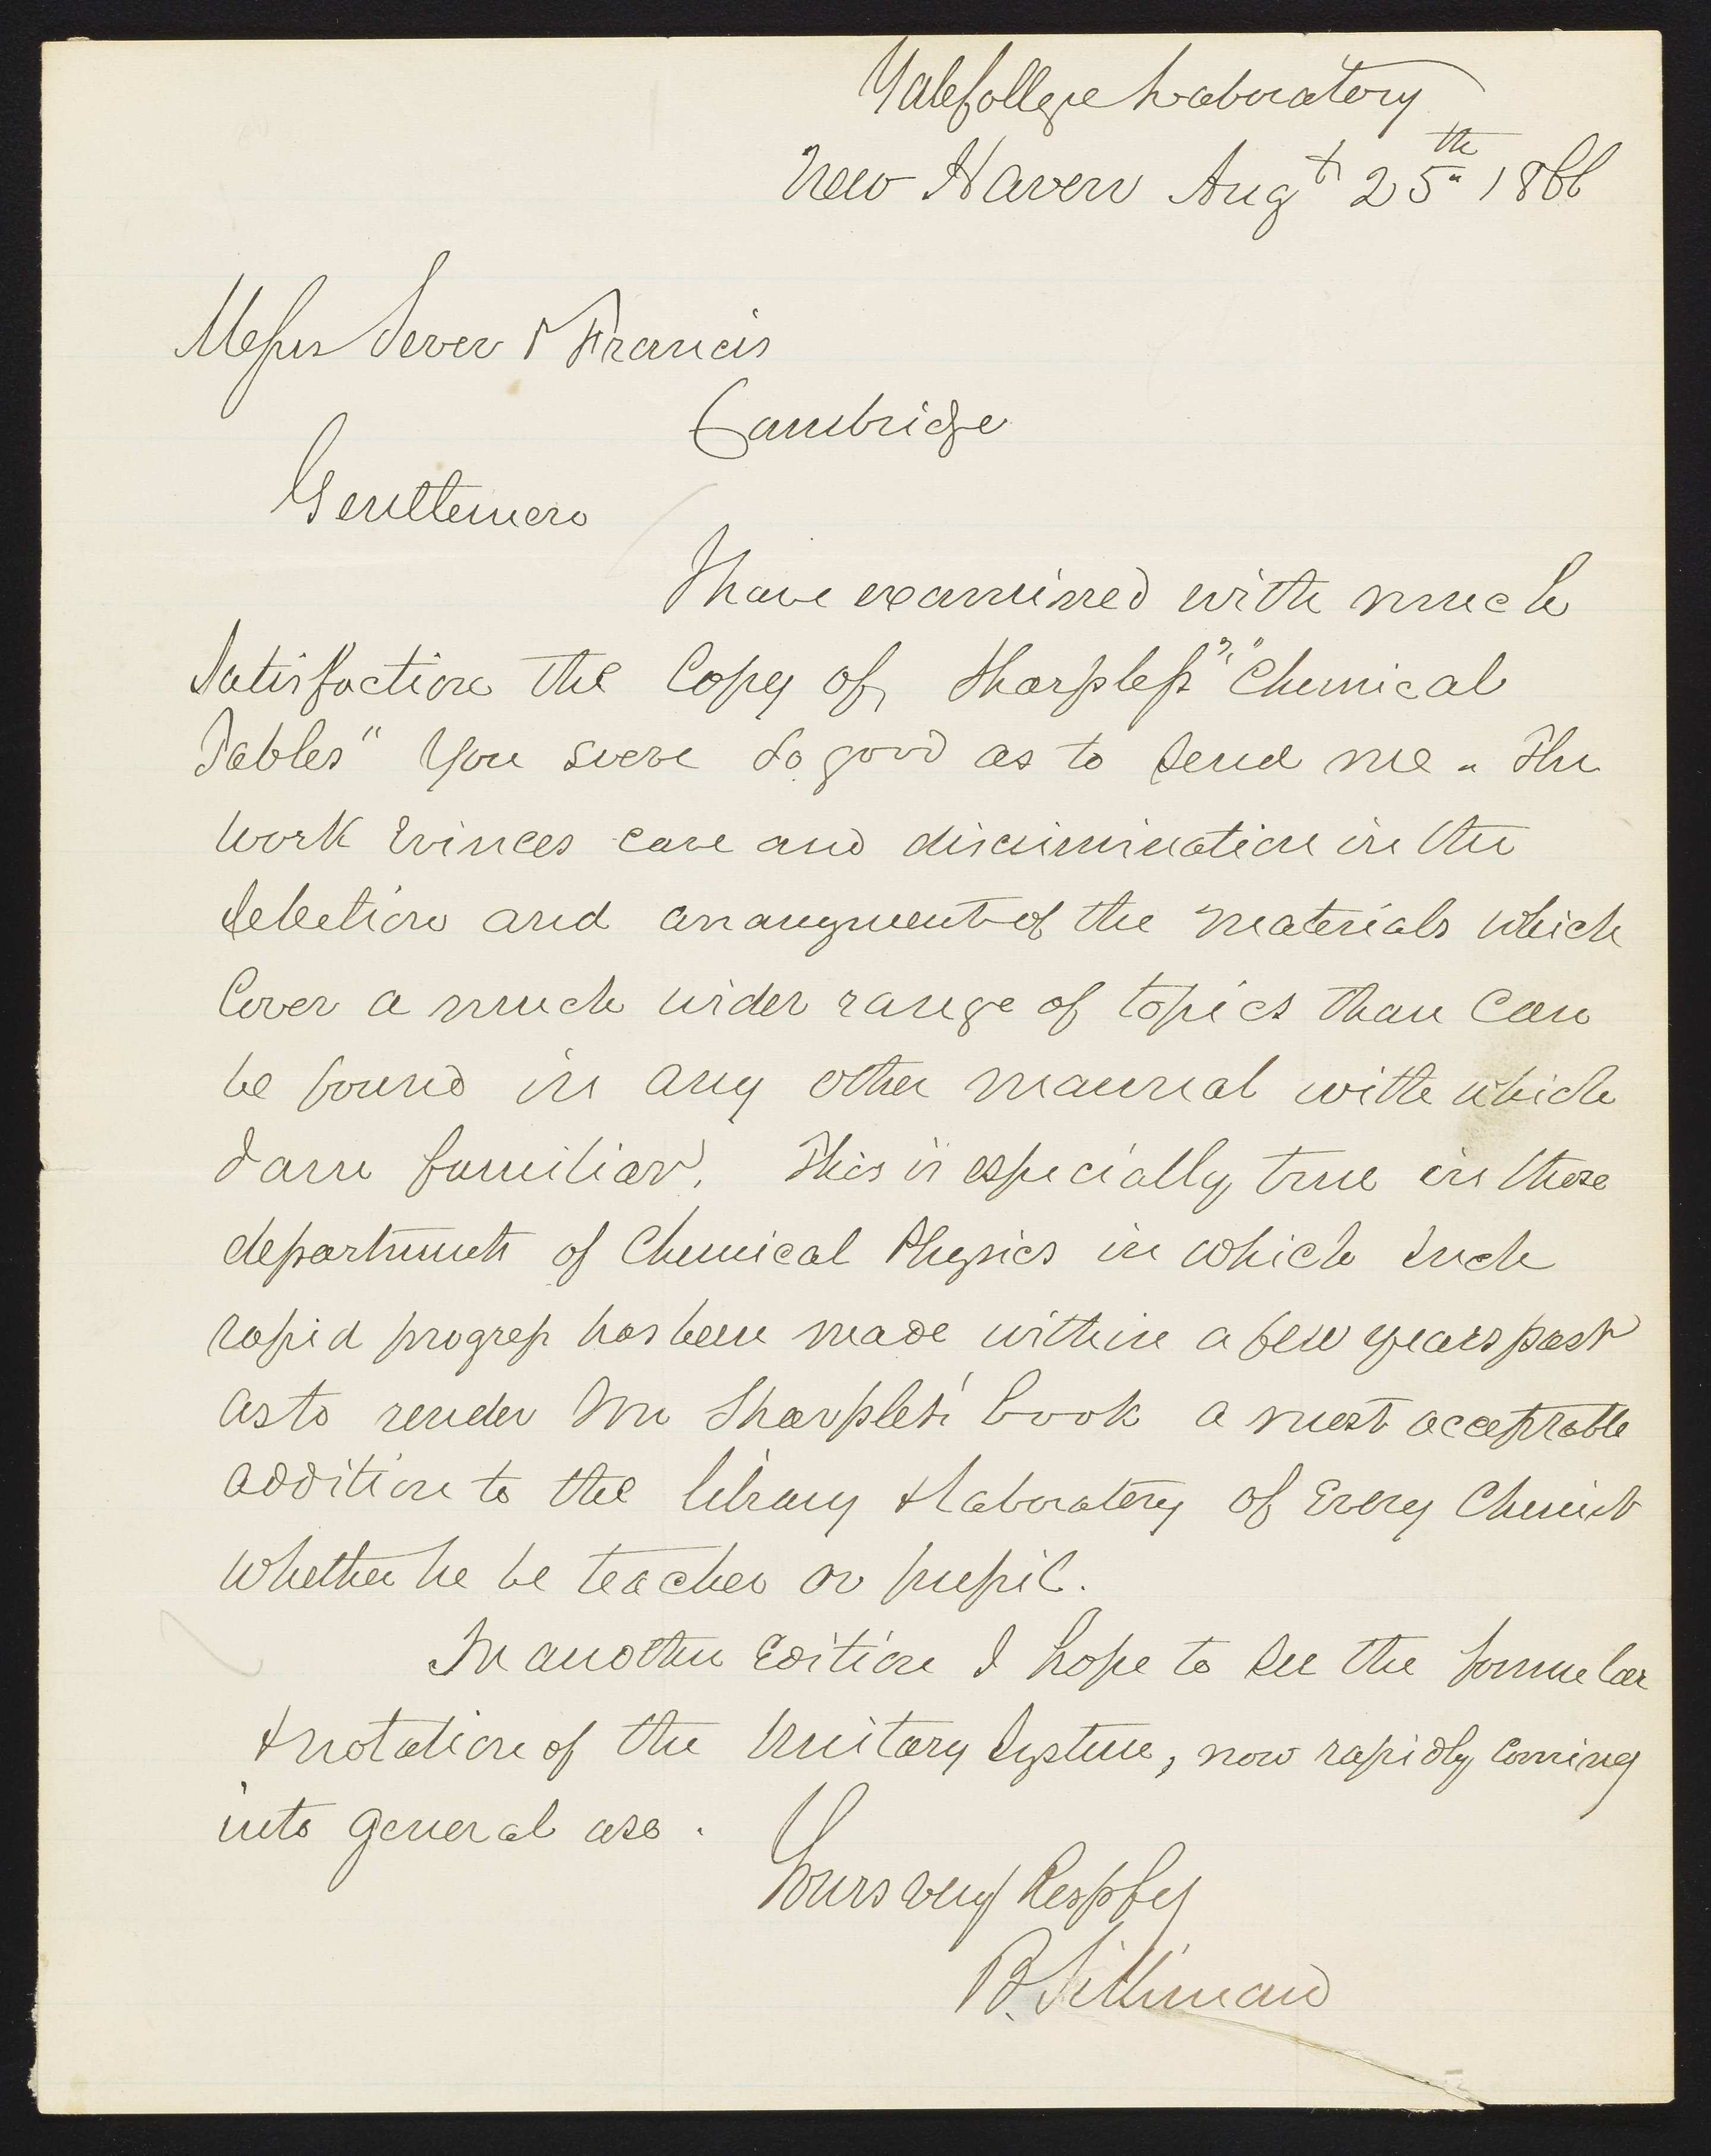 Yale College Laboratory
New Haven Augt 25th 1866
Messrs Sever & Francis
Cambridge
Gentlemen
I have examined with much
Satisfaction the Copy of Sharpless' "Chemical
Tables" You were so good as to send me. The
work Evinces care and discrimination in the
Selection and arrangment of the materials which
Cover a much wider range of topics than Can
be found in any other manual with which
I am familiar. This is especially true in those
departments of Chemical Physics in which such
rapid progress has been made within a few years past
as to render Mr Sharples' book a most acceptable
addition to the library & laboratory of Every Chemist
whether he be teacher or pupil.
In another Edition I hope to see the formulae
& notation of the Unitary System, now rapidly coming
into general use.
Yours very Respfy
B. Silliman